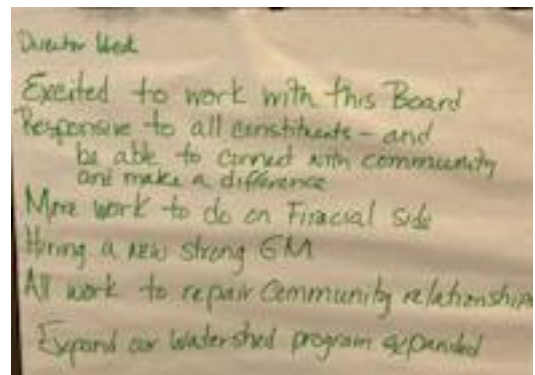 Director
Excited to work with this Board
Responsive to all constituents - and
be able to connect with community
and make a difference
More work to do on Finacial side
Hiring a new strong GM
All work to repair Community relationships
Expand our Watershed program expanded